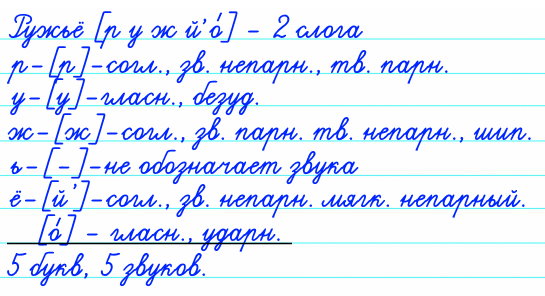 Ружьё [р у ж й’о́] – 2 слога
р–[р]–согл., зв. непарн., тв. парн.
у–[у]–гласн., безуд.
ж–[ж]–согл., зв. парн. тв. непарн., шип.
ь–[–]–не обозначает звука
ё–[й’]–согл., зв. непарн. мягк. непарный.
[о́] – гласн., ударн.
5 букв, 5 звуков.